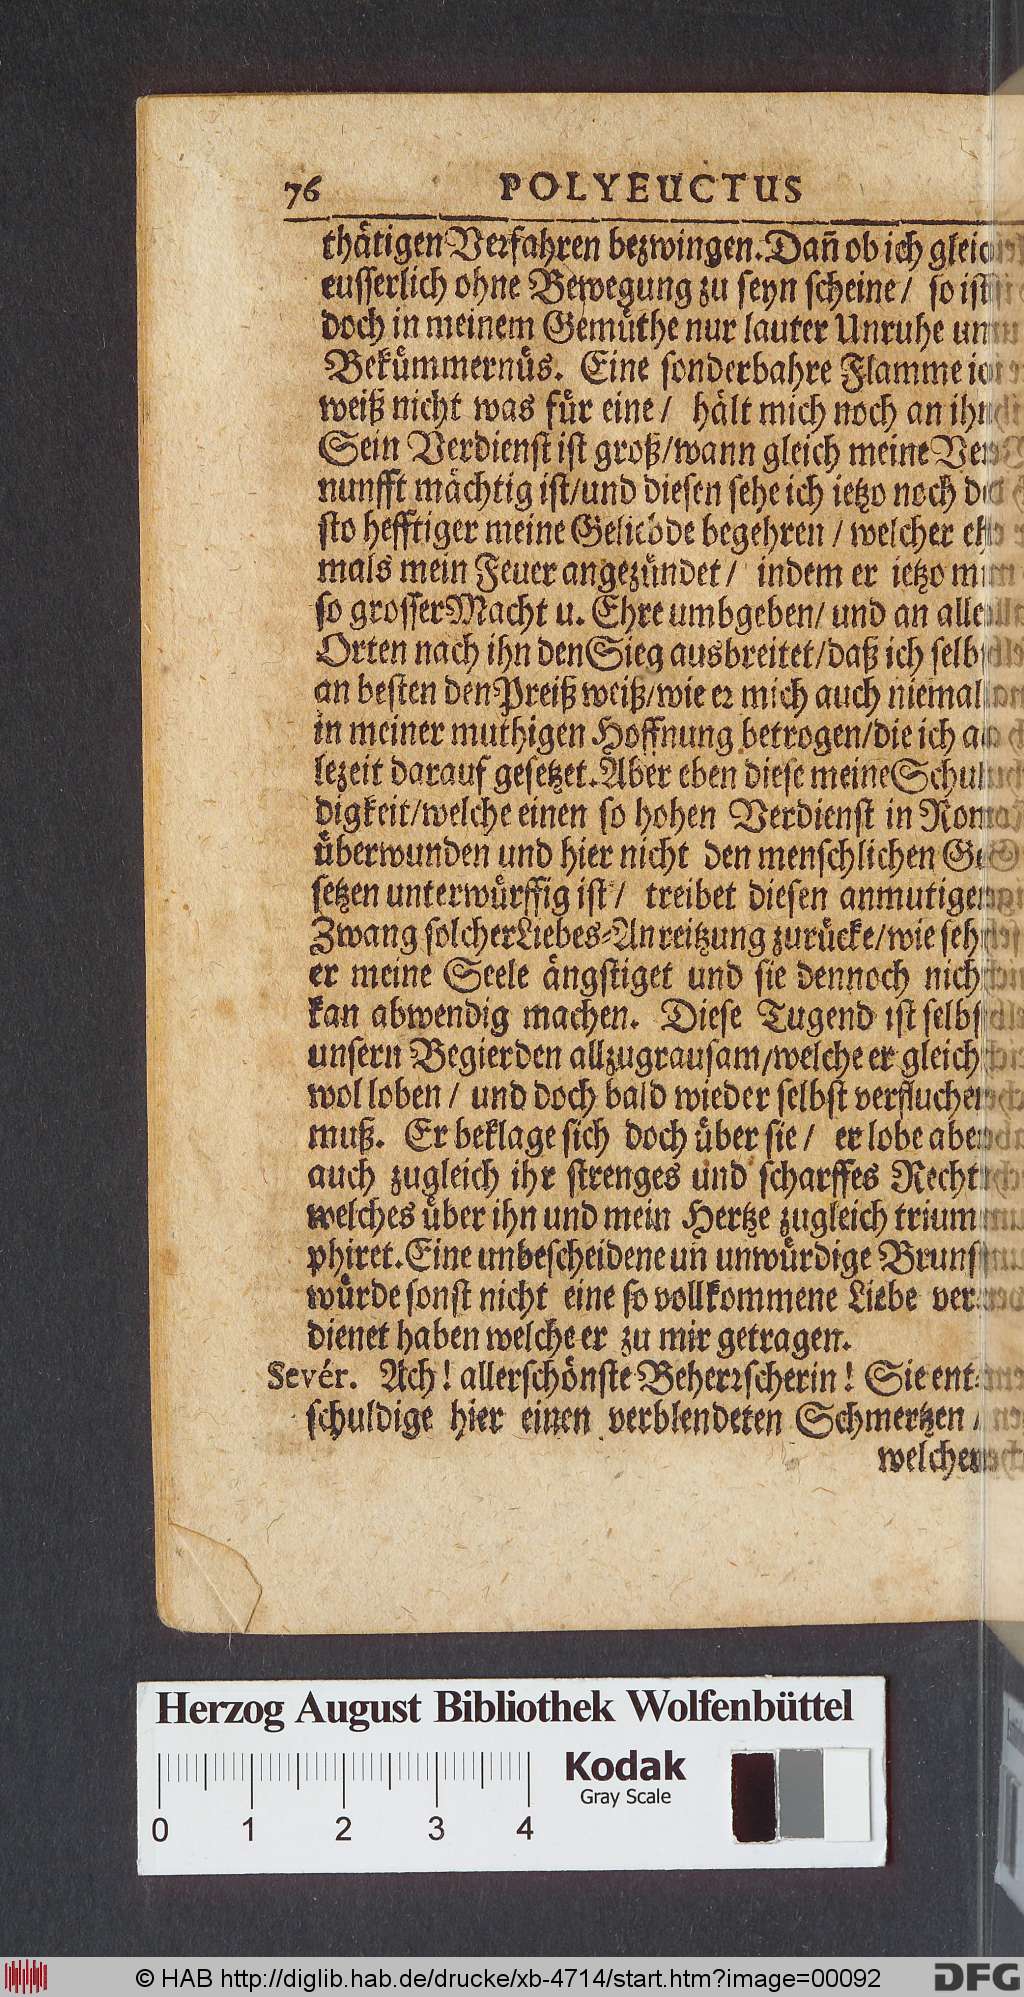 76 POLYEUCTUS
thätigen Verfahren bezwingen. Dañ ob ich gleich
eusserlich ohne Bewegung zu seyn scheine / so ist
doch in meinem Gemüthe nur lauter Unruhe und
Bekümmernüs. Eine sonderbahre Flamme ich
weiß nicht was für eine / hält mich noch an ihn
Sein Verdienst ist groß/wann gleich meine Ver-
nunfft mächtig ist/und diesen sehe ich ietzo noch de-
sto hefftiger meine Geliebde begehren / welcher ehe-
mals mein Feuer angezündet / indem er ietzo mit
so grosser Macht u. Ehre umbgeben/ und an allen
Orten nach ihn den Sieg ausbreitet/daß ich selbst
an besten den Preiß weiß/wie er mich auch niemals
in meiner muthigen Hoffnung betrogen/die ich al-
lezeit darauf gesetzet. Aber eben diese meine Schul-
digkeit/welche einen so hohen Verdienst in Rom
überwunden und hier nicht den menschlichen Ge-
setzen unterwürffig ist / treibet diesen anmutigen
Zwang solcher Liebes-Anreitzung zurücke/wie sehr
er meine Seele ängstiget und sie dennoch nicht
kan abwendig machen. Diese Tugend ist selbst
unsern Begierden allzugrausam/welche er gleich
wol loben / und doch bald wieder selbst verfluchen
muß. Er beklage sich doch über sie / er lobe aber
auch zugleich ihr strenges und scharffes Recht
welches über ihn und mein Hertze zugleich trium-
phiret. Eine unbescheidene uñ unwürdige Brunst
würde sonst nicht eine so vollkommene Liebe ver-
dienet haben welche er zu mir getragen.
Sevér. Ach! allerschönste Beherrscherin! Sie ent-
schuldige hier einen verblendeten Schmertzen /
welcher
Herzog August Bibliothek Wolfenbüttel
Kodak
Gray Scale
0 1 2 3 4
© HAB http://diglib.hab.de/drucke/xb-4714/start.htm?image=00092
DFG